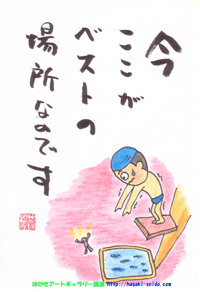 今
ここが
ベストの
場所なのです
はがきアートギャラリー誠道 http://hagaki-seido.com